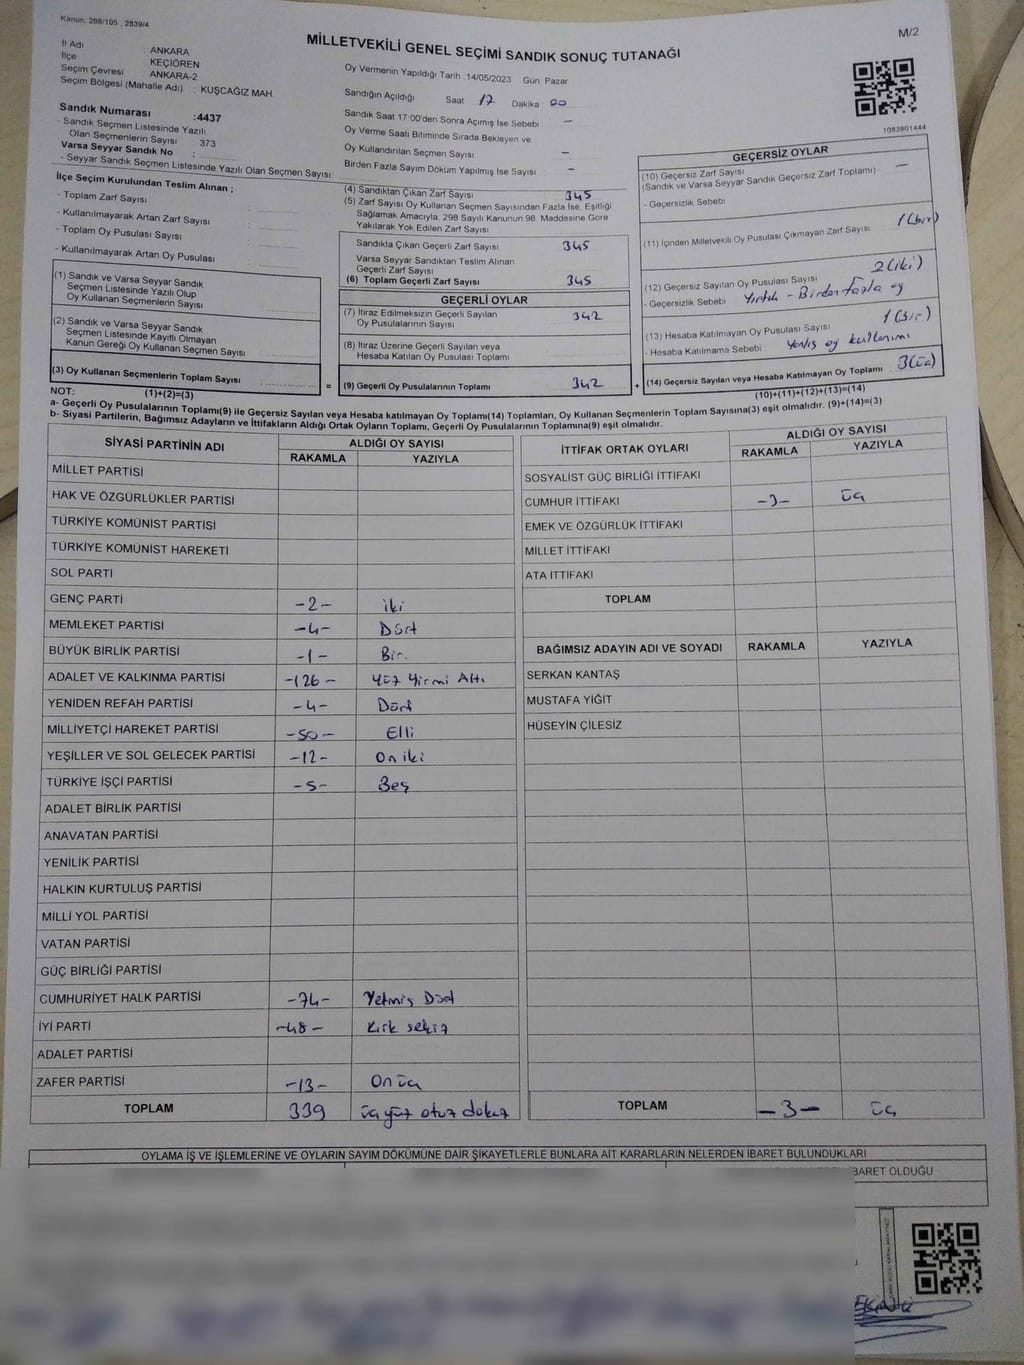 Kanun; 298/105 , 2839/4
M/2
MİLLETVEKİLİ GENEL SEÇİMİ SANDIK SONUÇ TUTANAĞI
İl Adı : ANKARA
İlçe KEÇİÖREN
Seçim Çevresi : ANKARA-2
Seçim Bölgesi (Mahalle Adı) : KUŞCAĞIZ MAH.
Sandık Numarası :4437
- Sandık Seçmen Listesinde Yazılı
Olan Seçmenlerin Sayısı 373
Varsa Seyyar Sandık No :
- Seyyar Sandık Seçmen Listesinde Yazılı Olan Seçmen Sayısı:
Oy Vermenin Yapıldığı Tarih 14/05/2023 Gün Pazar
Sandığın Açıldığı Saat 17 Dakika 00
Sandık Saat 17:00'den Sonra Açımış İse Sebebi : —
Oy Verme Saati Bitiminde Sırada Bekleyen ve
Oy Kullandırılan Seçmen Sayısı —
Birden Fazla Sayım Döküm Yapılmış İse Sayısı —
1083801444
İlçe Seçim Kurulundan Teslim Alınan ;
- Toplam Zarf Sayısı
- Kullanılmayarak Artan Zarf Sayısı
- Toplam Oy Pusulası Sayısı
- Kullanılmayarak Artan Oy Pusulası
(1) Sandık ve Varsa Seyyar Sandık
Seçmen Listesinde Yazılı Olup
Oy Kullanan Seçmenlerin Sayısı
(2) Sandık ve Varsa Seyyar Sandık
Seçmen Listesinde Kayıtlı Olmayan
Kanun Gereği Oy Kullanan Seçmen Sayısı
(3) Oy Kullanan Seçmenlerin Toplam Sayısı =
(1)+(2)=(3)
(4) Sandıktan Çıkan Zarf Sayısı 345
(5) Zarf Sayısı Oy Kullanan Seçmen Sayısından Fazla İse, Eşitliği
Sağlamak Amacıyla; 298 Sayılı Kanunun 98. Maddesine Göre
Yakılarak Yok Edilen Zarf Sayısı
Sandıkta Çıkan Geçerli Zarf Sayısı 345
Varsa Seyyar Sandıktan Teslim Alınan
Geçerli Zarf Sayısı
(6) Toplam Geçerli Zarf Sayısı 345
GEÇERLİ OYLAR
(7) İtiraz Edilmeksizin Geçerli Sayılan
Oy Pusulalarının Sayısı 342
(8) İtiraz Üzerine Geçerli Sayılan veya
Hesaba Katılan Oy Pusulası Toplamı
(9) Geçerli Oy Pusulalarının Toplamı 342 +
GEÇERSİZ OYLAR
(10) Geçersiz Zarf Sayısı —
(Sandık ve Varsa Seyyar Sandık Geçersiz Zarf Toplamı)
- Geçersizlik Sebebi
(11) İçinden Milletvekili Oy Pusulası Çıkmayan Zarf Sayısı 1 (bir)
(12) Geçersiz Sayılan Oy Pusulası Sayısı 2 (iki)
- Geçersizlik Sebebi : Yırtık - Birden fazla oy
(13) Hesaba Katılmayan Oy Pusulası Sayısı 1 (Bir)
- Hesaba Katılmama Sebebi : Yanlış oy kullanımı
(14) Geçersiz Sayılan veya Hesaba Katılmayan Oy Toplamı 3 (üç)
(10)+(11)+(12)+(13)=(14)
NOT:
a- Geçerli Oy Pusulalarının Toplamı(9) ile Geçersiz Sayılan veya Hesaba katılmayan Oy Toplamı(14) Toplamları, Oy Kullanan Seçmenlerin Toplam Sayısına(3) eşit olmalıdır. (9)+(14)=(3)
b- Siyasi Partilerin, Bağımsız Adayların ve İttifakların Aldığı Ortak Oyların Toplamı, Geçerli Oy Pusulalarının Toplamına(9) eşit olmalıdır.
SİYASİ PARTİNİN ADI ALDIĞI OY SAYISI
RAKAMLA YAZIYLA
MİLLET PARTİSİ
HAK VE ÖZGÜRLÜKLER PARTİSİ
TÜRKİYE KOMÜNİST PARTİSİ
TÜRKİYE KOMÜNİST HAREKETİ
SOL PARTİ
GENÇ PARTİ -2- iki
MEMLEKET PARTİSİ -4- Dört
BÜYÜK BİRLİK PARTİSİ -1- Bir.
ADALET VE KALKINMA PARTİSİ -126- Yüz Yirmi Altı
YENİDEN REFAH PARTİSİ -4- Dört
MİLLİYETÇİ HAREKET PARTİSİ -50- Elli
YEŞİLLER VE SOL GELECEK PARTİSİ -12- On iki
TÜRKİYE İŞÇİ PARTİSİ -5- Beş
ADALET BİRLİK PARTİSİ
ANAVATAN PARTİSİ
YENİLİK PARTİSİ
HALKIN KURTULUŞ PARTİSİ
MİLLİ YOL PARTİSİ
VATAN PARTİSİ
GÜÇ BİRLİĞİ PARTİSİ
CUMHURİYET HALK PARTİSİ -74- Yetmiş Dört
İYİ PARTİ -48- Kırk sekiz
ADALET PARTİSİ
ZAFER PARTİSİ -13- On üç
TOPLAM 339 üçyüz otuz dokuz
İTTİFAK ORTAK OYLARI ALDIĞI OY SAYISI
RAKAMLA YAZIYLA
SOSYALİST GÜÇ BİRLİĞİ İTTİFAKI
CUMHUR İTTİFAKI -3- üç
EMEK VE ÖZGÜRLÜK İTTİFAKI
MİLLET İTTİFAKI
ATA İTTİFAKI
TOPLAM
BAĞIMSIZ ADAYIN ADI VE SOYADI RAKAMLA YAZIYLA
SERKAN KANTAŞ
MUSTAFA YİĞİT
HÜSEYİN ÇİLESİZ
TOPLAM -3- üç
OYLAMA İŞ VE İŞLEMLERİNE VE OYLARIN SAYIM DÖKÜMÜNE DAİR ŞİKAYETLERLE BUNLARA AİT KARARLARIN NELERDEN İBARET BULUNDUKLARI
İBARET OLDUĞU